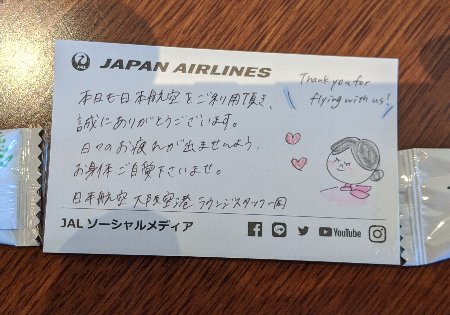 JAPAN AIRLINES
Thank you for
flying with us!
本日も日本航空をご利用頂き、
誠にありがとうございます。
日々のお疲れが出ませんよう、
お身体ご自愛下さいませ。
日本航空 大阪空港 ラウンジスタッフ一同
JAL ソーシャルメディア
YouTube